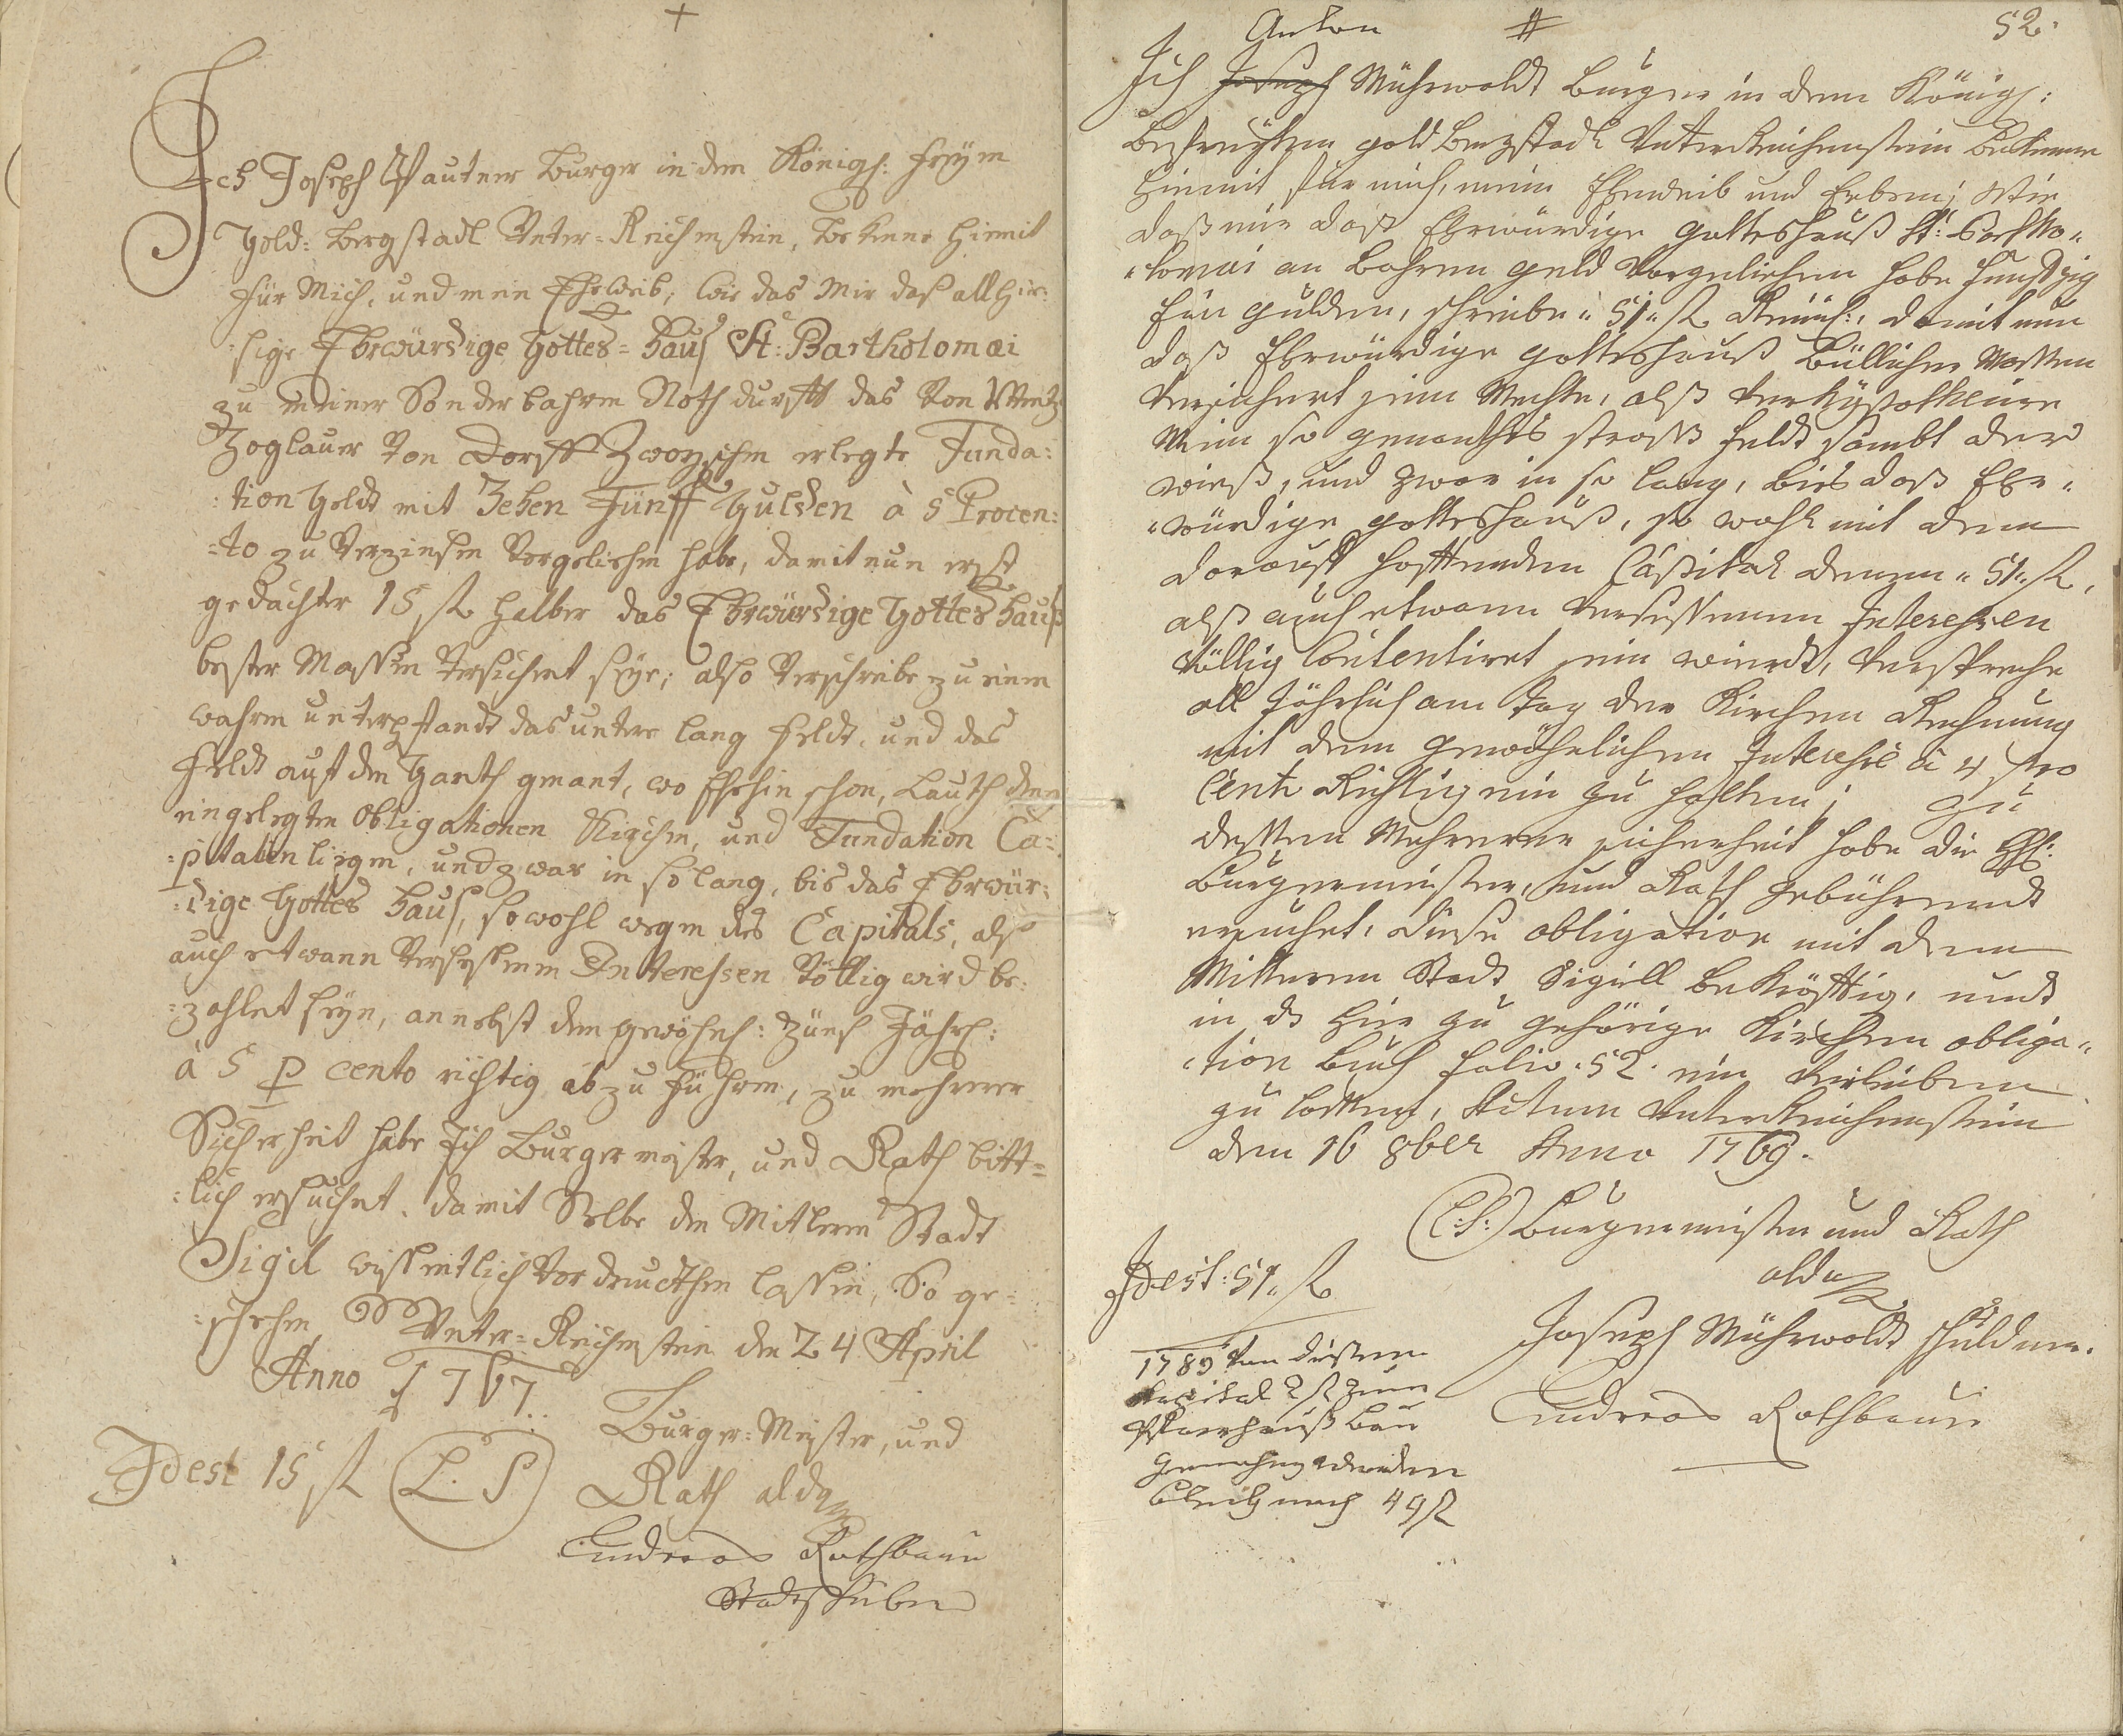 Ich Joseph Pautner Burger in dem Königl: Freyen
Gold= Bergstadl Unter=Reichenstein, bekenne hiemit
für Mich, und mein Eheweib, wie das Mir das allhie=
:sige Ehrwürdige Gottes=Hauß St: Bartholomæi
zu meiner Sonderbahren Nothdurfft das von
Zoglauer von Dorff Zwoyschen erlegte Funda:
:tion Geldt mit Zehen Fünff Gulden à 5 Procen:
:to zu Verzinsen Vorgeliehen habe, damit nun erst
gedachter 15 fl halber das Ehrwürdige Gottes Hauß
bester Massen Versichert seye; also Verschreibe zu einem
wahren unterpfandt das untere lang Feldt, und das
Feldt auf der Harth genant, wo Ehehin schon, Lauth denen
eingelegten Obligationen Kirchen, und Fundation Ca=
:pitalien liegen, und zwar in so lang, bis das Ehrwür:
:dige Gottes Hauß, sowohl wegen des Capitals, als
auch etwann Versessenen Interessen Völlig wird be:
:zahlet seyn, annebst den gewöhnl: Zünß Jährl:
à 5 p cento richtig abzuführen, zu mehrerer
Sicherheit habe Ich Burgermeister, und Rath bitt=
:lich ersuchet, damit Selbe den Mitleren Stadt
Sigil wissentlich Vordruckhen lassen, So ge=
:schehen Unter=Reichenstein den 24 April
Anno 1767.
Burger=Meister, und
Idest 15 fl (L. S) Rath alda
Andreas Rothbaur
Stadtschreiber
52.
Anton #
Ich Joseph Mührwaldt Burger in dem Königl:
Befreyten gold Bergstadl Unterreichenstein Bekenne
hiemit für mich, mein Eheweib und Erben; Wie
daß mir daß Ehrwürdige Gotteshauß St: Bartho=
=lomæi an Bahren geld Vorgeliehen habe Funffzig
Ein gulden, schreibe " 51 " fl Reinl:, damit nun
daß Ehrwürdige gotteshauß Billicher Massen
Versichert sein Mechte, alß Verhypotheciere
Mein so genanthes stroß Feldt sambt der
wieß, und zwar in so lang, bis daß Ehr=
=würdige gotteshauß, so wohl mit dem
darauff hafftenden Capital denen " 51 " fl,
alß auch etwann Versessenen Interessen
Völlig Contentiret sein wierdt, Verspreche
all Jährlich am Tag der Kirchen Rechnung
mit dem gewöhnlichen Interesse à 4 pro
Cento Richtig ein zu halten; Zu
dessen Mehrerer sicherheit habe die HH:
Burgermeister, und Rath gebührendt
ersuchet, diese obligation mit dem
Mitteren Stadt Sigill bekräfftig, undt
in ds hier zu gehörige Kirchen obliga=
=tion Buch Folio. 52. ein Verleiben
zu lassen, Actum Unterreichenstein
den 16 8ber Anno 1769.
(L:S:) Burgermeister und Rath
alda
Idest: 51 " fl
Joseph Mührwaldt schuldner.
Andreas Rothbaur
1789 Von disem
Capital 2 fl zum
Pfarrhauß bau
genohmen worden
bleibt noch 49 fl